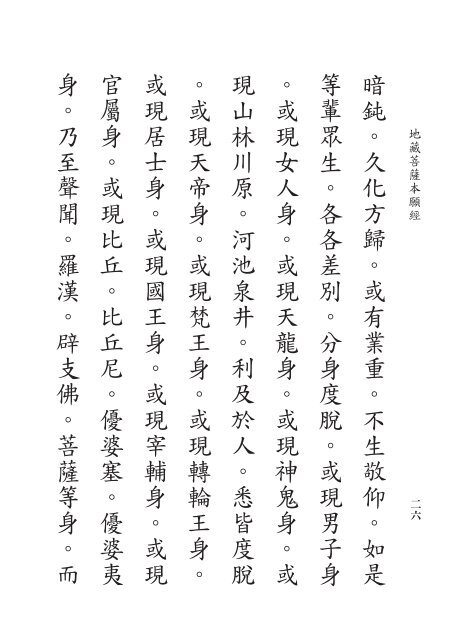 地藏菩薩本願經
二六
暗鈍。久化方歸。或有業重。不生敬仰。如是
等輩眾生。各各差別。分身度脫。或現男子身
。或現女人身。或現天龍身。或現神鬼身。或
現山林川原。河池泉井。利及於人。悉皆度脫
。或現天帝身。或現梵王身。或現轉輪王身。
或現居士身。或現國王身。或現宰輔身。或現
官屬身。或現比丘。比丘尼。優婆塞。優婆夷
身。乃至聲聞。羅漢。辟支佛。菩薩等身。而